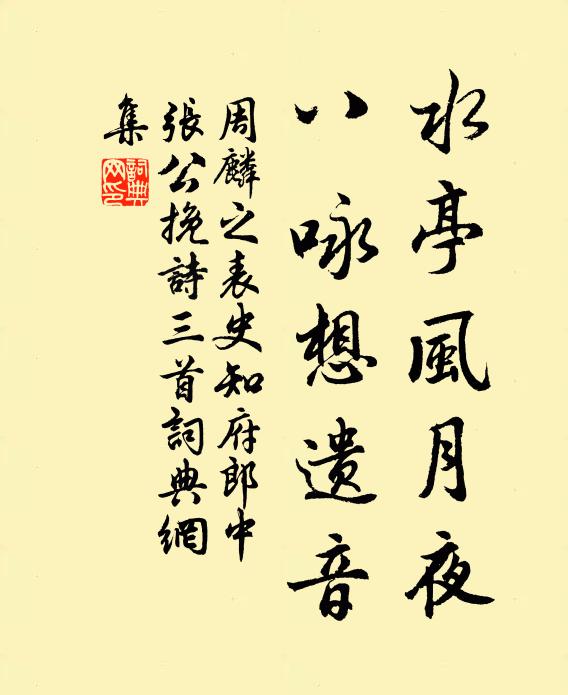 水亭風月夜
八咏想遺音
周麟之表史知府郎中
張公挽詩三首詞典網
集
詞典網印